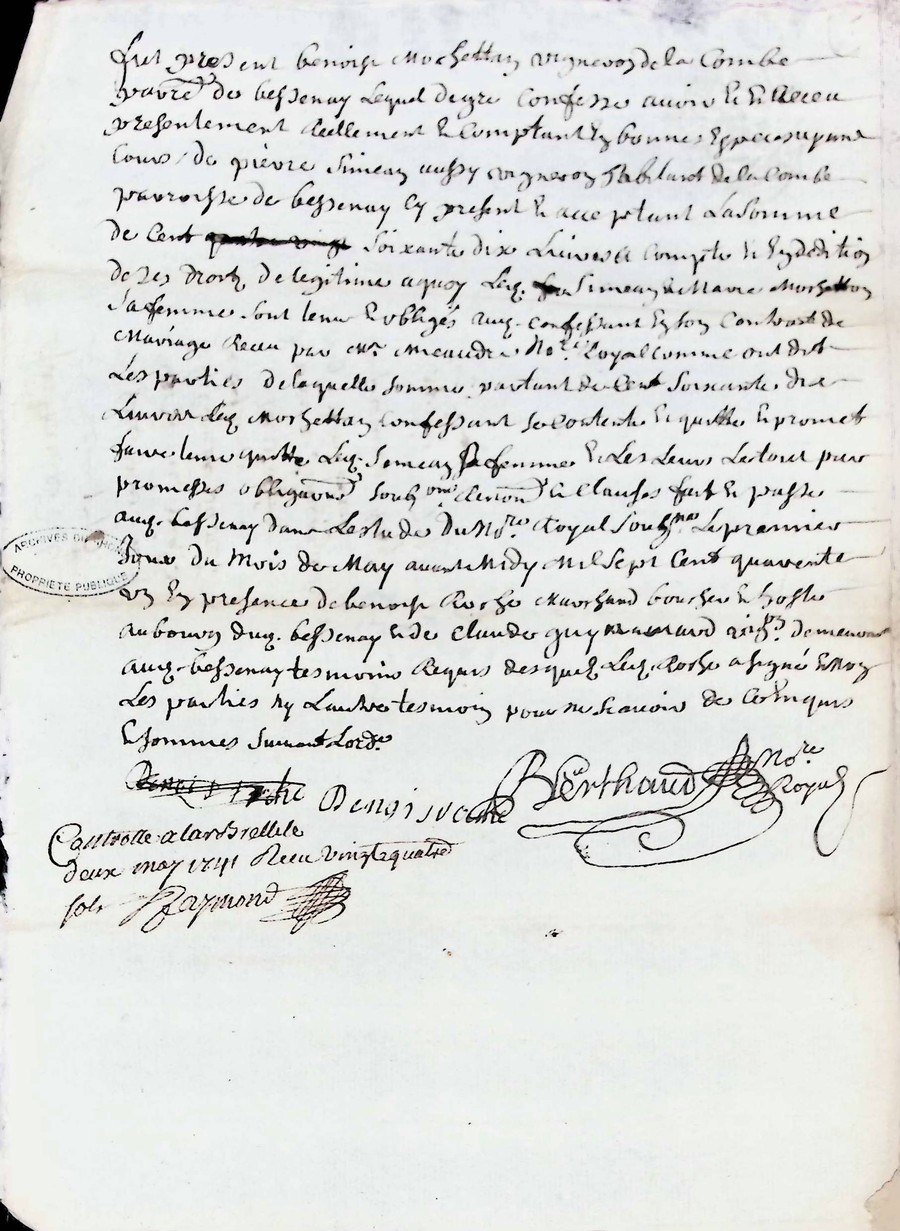 fut present benoist Mochettan vigneron de la Combe
parre de bessenay Lequel de gre Confesse avoir Eu & Receu
presentement Reellement & Comptant En bonnes Especes ayant
Cours de pierre Simean aussy vigneron habitant de la Combe
parroisse de bessenay Cy present & acceptant La somme
de Cent quatre vingt soixante dix Livres a Compte &
de ses droits de legitime a quoy Led. Simean & Marie Mochettan
sa femme sont tenu & obligés aud. Confessant En son Contrat de
Mariage Receu par Me Meaudre Nore Royal Comme ont dit
Les parties de laquelle somme partant de Cent soixante dix
Livres Led. Mochettan Confessant se Contente & quitte & promet
faire tenir quitte Led. Simean sa femme & Les Leurs Le tout par
promesses obligaons soubmons Renonons & Clauses fait & passé
aud. bessenay dans L'estude du Nore Royal soubsné Le premier
Jour du Mois de May avant Midy Mil sept Cent quarante
un En presence de benoist Roche Marchand boucher & hoste
au bourg dud. bessenay & de Claude guy vign. demeurant
aud. bessenay tesmoins Requis desquels Led. Roche a signé & Non
Les parties ny L'autre tesmoin pour ne scavoir de ce Enquis
& sommes suivant Lordce
Benoist roche Benoist roche Berthaud Nore Royal
Controllé a larbrelle le
deux may 1741 Receu vingt quatre
sols Raymond
ARCHIVES DU RHONE
PROPRIETE PUBLIQUE